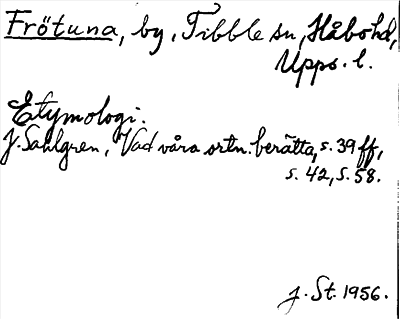 Frötuna, by, Tibble sn, Håbo hd,
Upps. l.
Etymologi.
J. Sahlgren, Vad våra ortn. berätta, s. 39 ff,
s. 42, s. 58.
J. St. 1956.